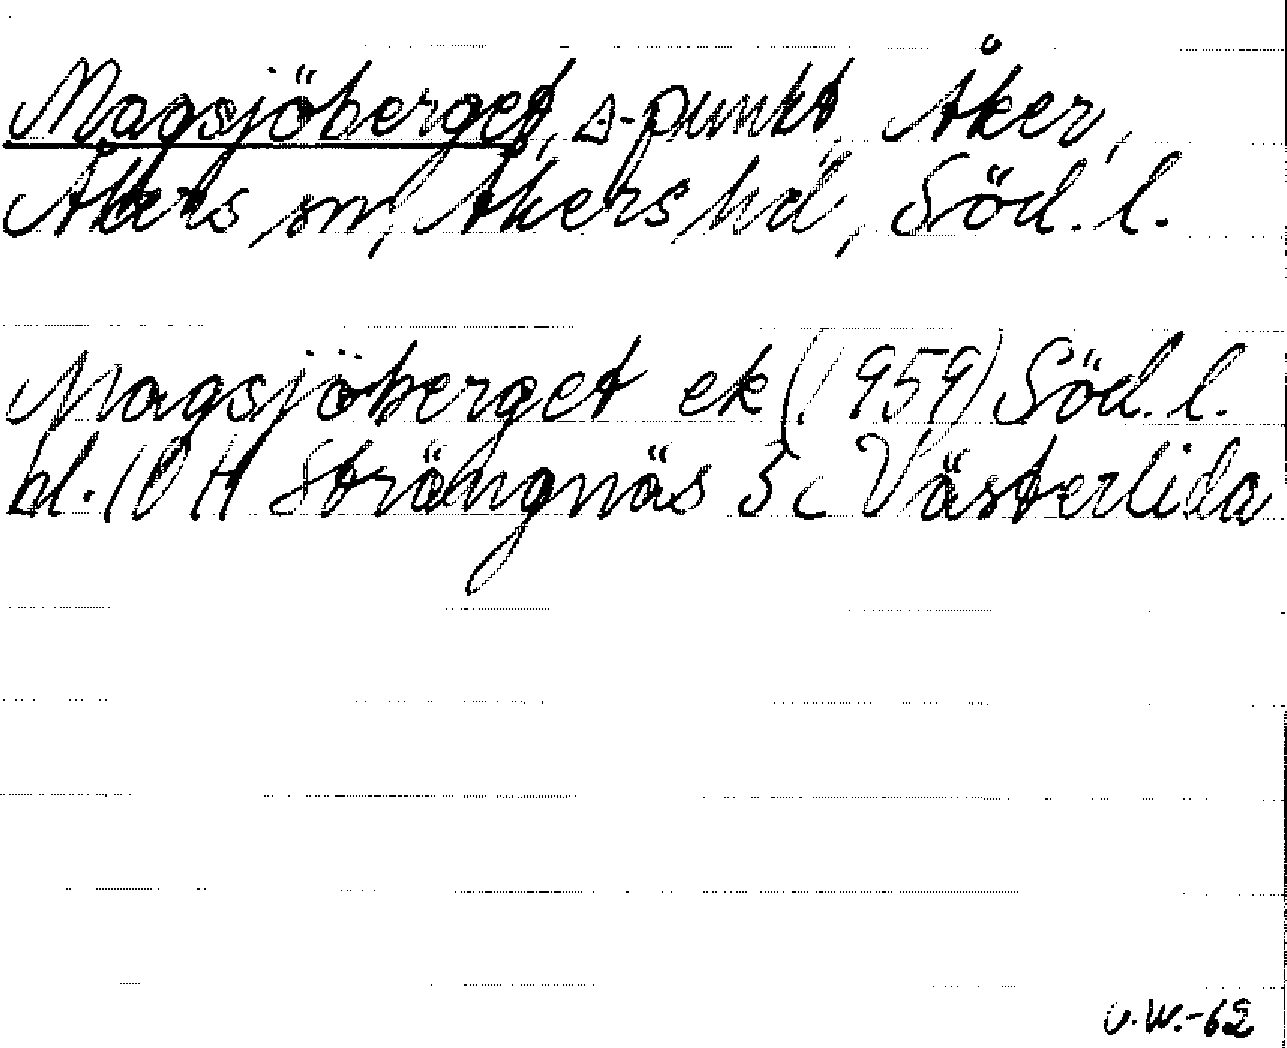 Magsjöberget, △-punkt, Åker,
Åkers sn, Åkers hd, Söd. l.
Magsjöberget ek (1959) Söd. l.
bl. 10 H Strängnäs 3c Västerlida
v.W.-62